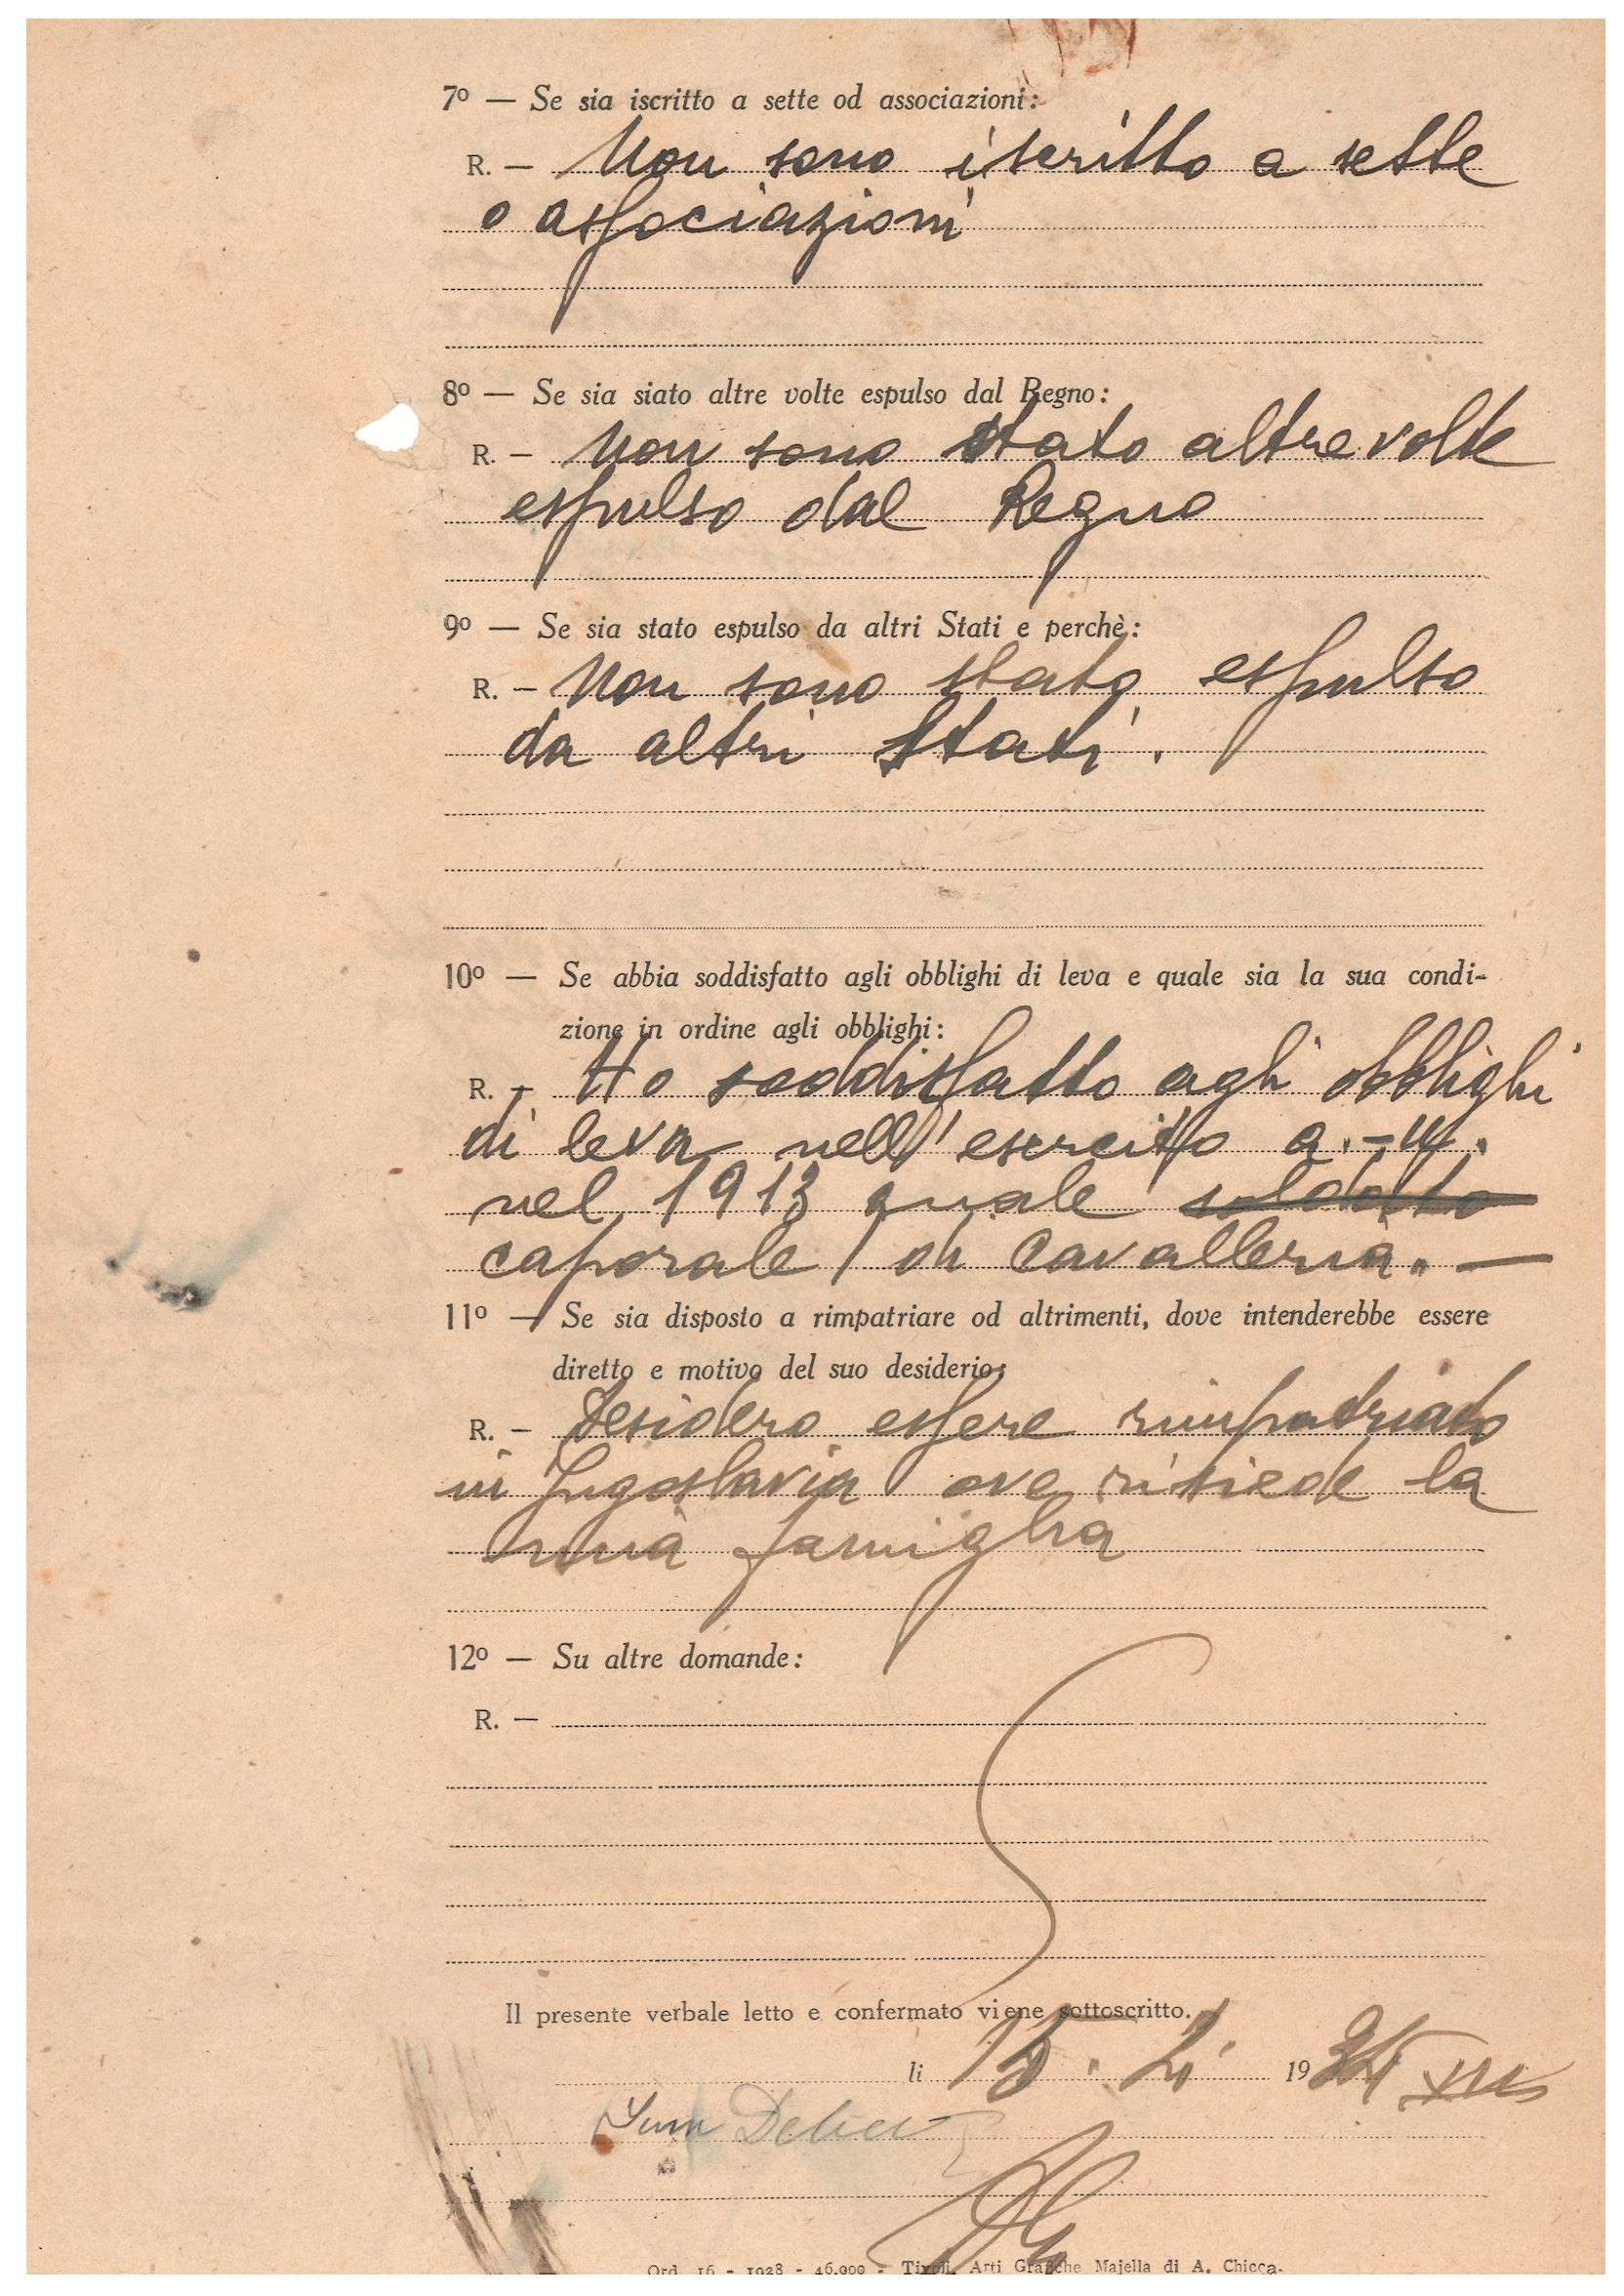 7º — Se sia iscritto a sette od associazioni:
R. — Non sono iscritto a sette
o associazioni
8º — Se sia siato altre volte espulso dal Regno:
R. — Non sono stato altre volte
espulso dal Regno
9º — Se sia stato espulso da altri Stati e perchè:
R. — Non sono stato espulso
da altri Stati.
10º — Se abbia soddisfatto agli obblighi di leva e quale sia la sua condi-
zione in ordine agli obblighi:
R. — Ho soddisfatto agli obblighi
di leva nell'esercito a.-u.
nel 1913 quale soldato
caporale di cavalleria. —
11º — Se sia disposto a rimpatriare od altrimenti, dove intenderebbe essere
diretto e motivo del suo desiderio:
R. — Desidero essere rimpatriato
in Jugoslavia ove risiede la
mia famiglia
12º — Su altre domande:
R. —
Il presente verbale letto e confermato viene sottoscritto.
li 15. 1934 XII
Ord. 16 - 1928 - 46.000 - Tivoli, Arti Grafiche Majella di A. Chicca.